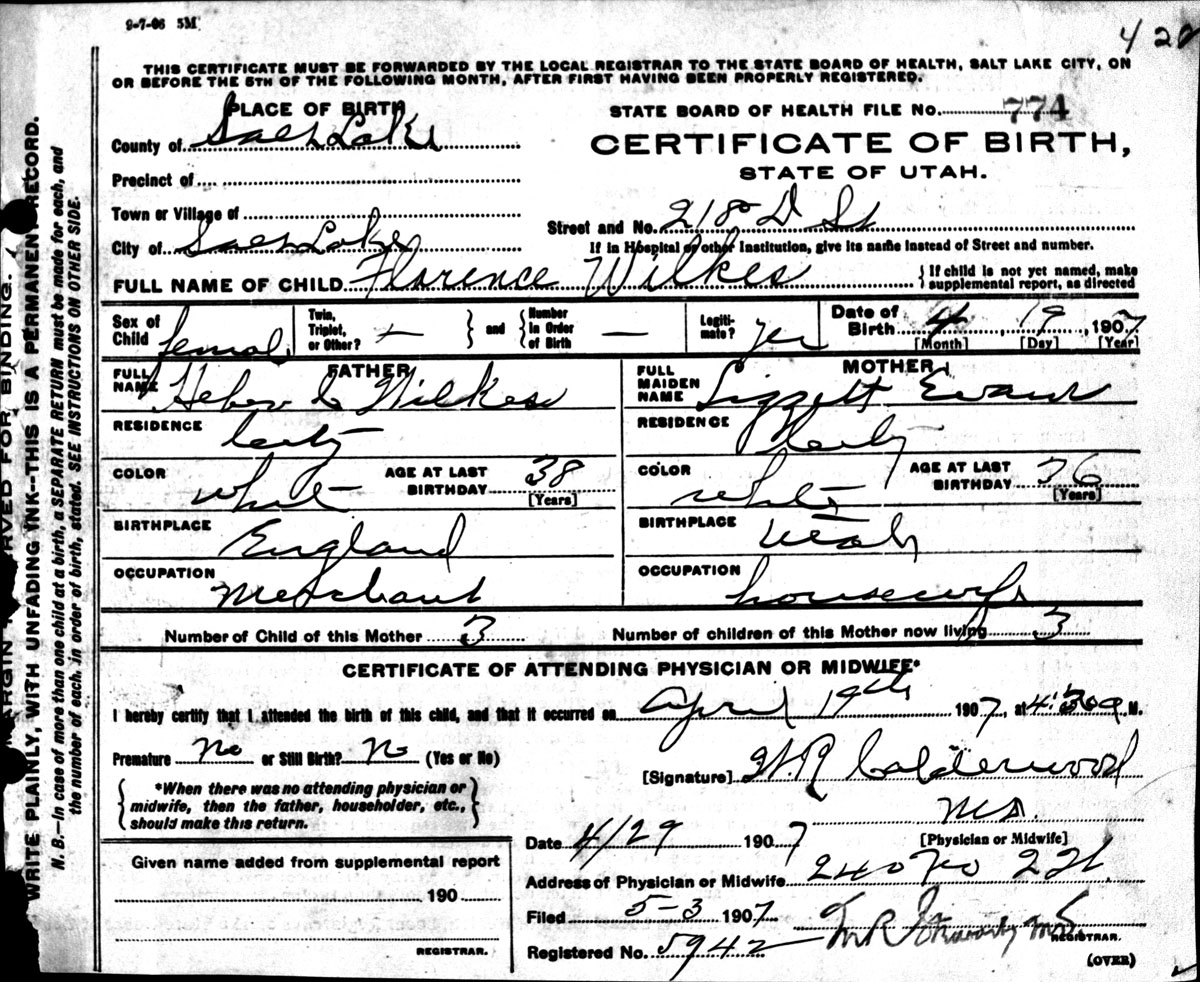 9-7-06 5M
420
THIS CERTIFICATE MUST BE FORWARDED BY THE LOCAL REGISTRAR TO THE STATE BOARD OF HEALTH, SALT LAKE CITY, ON
OR BEFORE THE 5TH OF THE FOLLOWING MONTH, AFTER FIRST HAVING BEEN PROPERLY REGISTERED.
PLACE OF BIRTH
STATE BOARD OF HEALTH FILE No. 774
County of Salt Lake
CERTIFICATE OF BIRTH,
STATE OF UTAH.
Precinct of
Town or Village of
Street and No. 218 D St
City of Salt Lake
If in Hospital or other Institution, give its name instead of Street and number.
FULL NAME OF CHILD Florence Wilkes
{If child is not yet named, make
supplemental report, as directed
Sex of Child female
Twin, Triplet, or Other? — } and { Number in Order of Birth —
Legitimate? yes
Date of Birth 4 19, 1907
[Month] [Day] [Year]
FATHER
MOTHER
FULL NAME Heber C Wilkes
FULL MAIDEN NAME Lizzett Evans
RESIDENCE City
RESIDENCE City
COLOR white AGE AT LAST BIRTHDAY 38 [Years]
COLOR white AGE AT LAST BIRTHDAY 36 [Years]
BIRTHPLACE England
BIRTHPLACE Utah
OCCUPATION Merchant
OCCUPATION housewife
Number of Child of this Mother 3
Number of children of this Mother now living 3
CERTIFICATE OF ATTENDING PHYSICIAN OR MIDWIFE*
I hereby certify that I attended the birth of this child, and that it occurred on April 19th 1907, at 4:30 a M.
Premature No or Still Birth? No (Yes or No)
[Signature] W.R Calderwood
MD.
[Physician or Midwife]
{*When there was no attending physician or
midwife, then the father, householder, etc.,
should make this return.}
Date 4/29 1907
Given name added from supplemental report
190
REGISTRAR.
Address of Physician or Midwife 240
Filed 5-3 1907
Registered No. 5942
REGISTRAR.
(OVER)
MARGIN RESERVED FOR BINDING.
WRITE PLAINLY, WITH UNFADING INK--THIS IS A PERMANENT RECORD.
N. B.—In case of more than one child at a birth, a SEPARATE RETURN must be made for each, and
the number of each, in order of birth, stated. SEE INSTRUCTIONS ON OTHER SIDE.